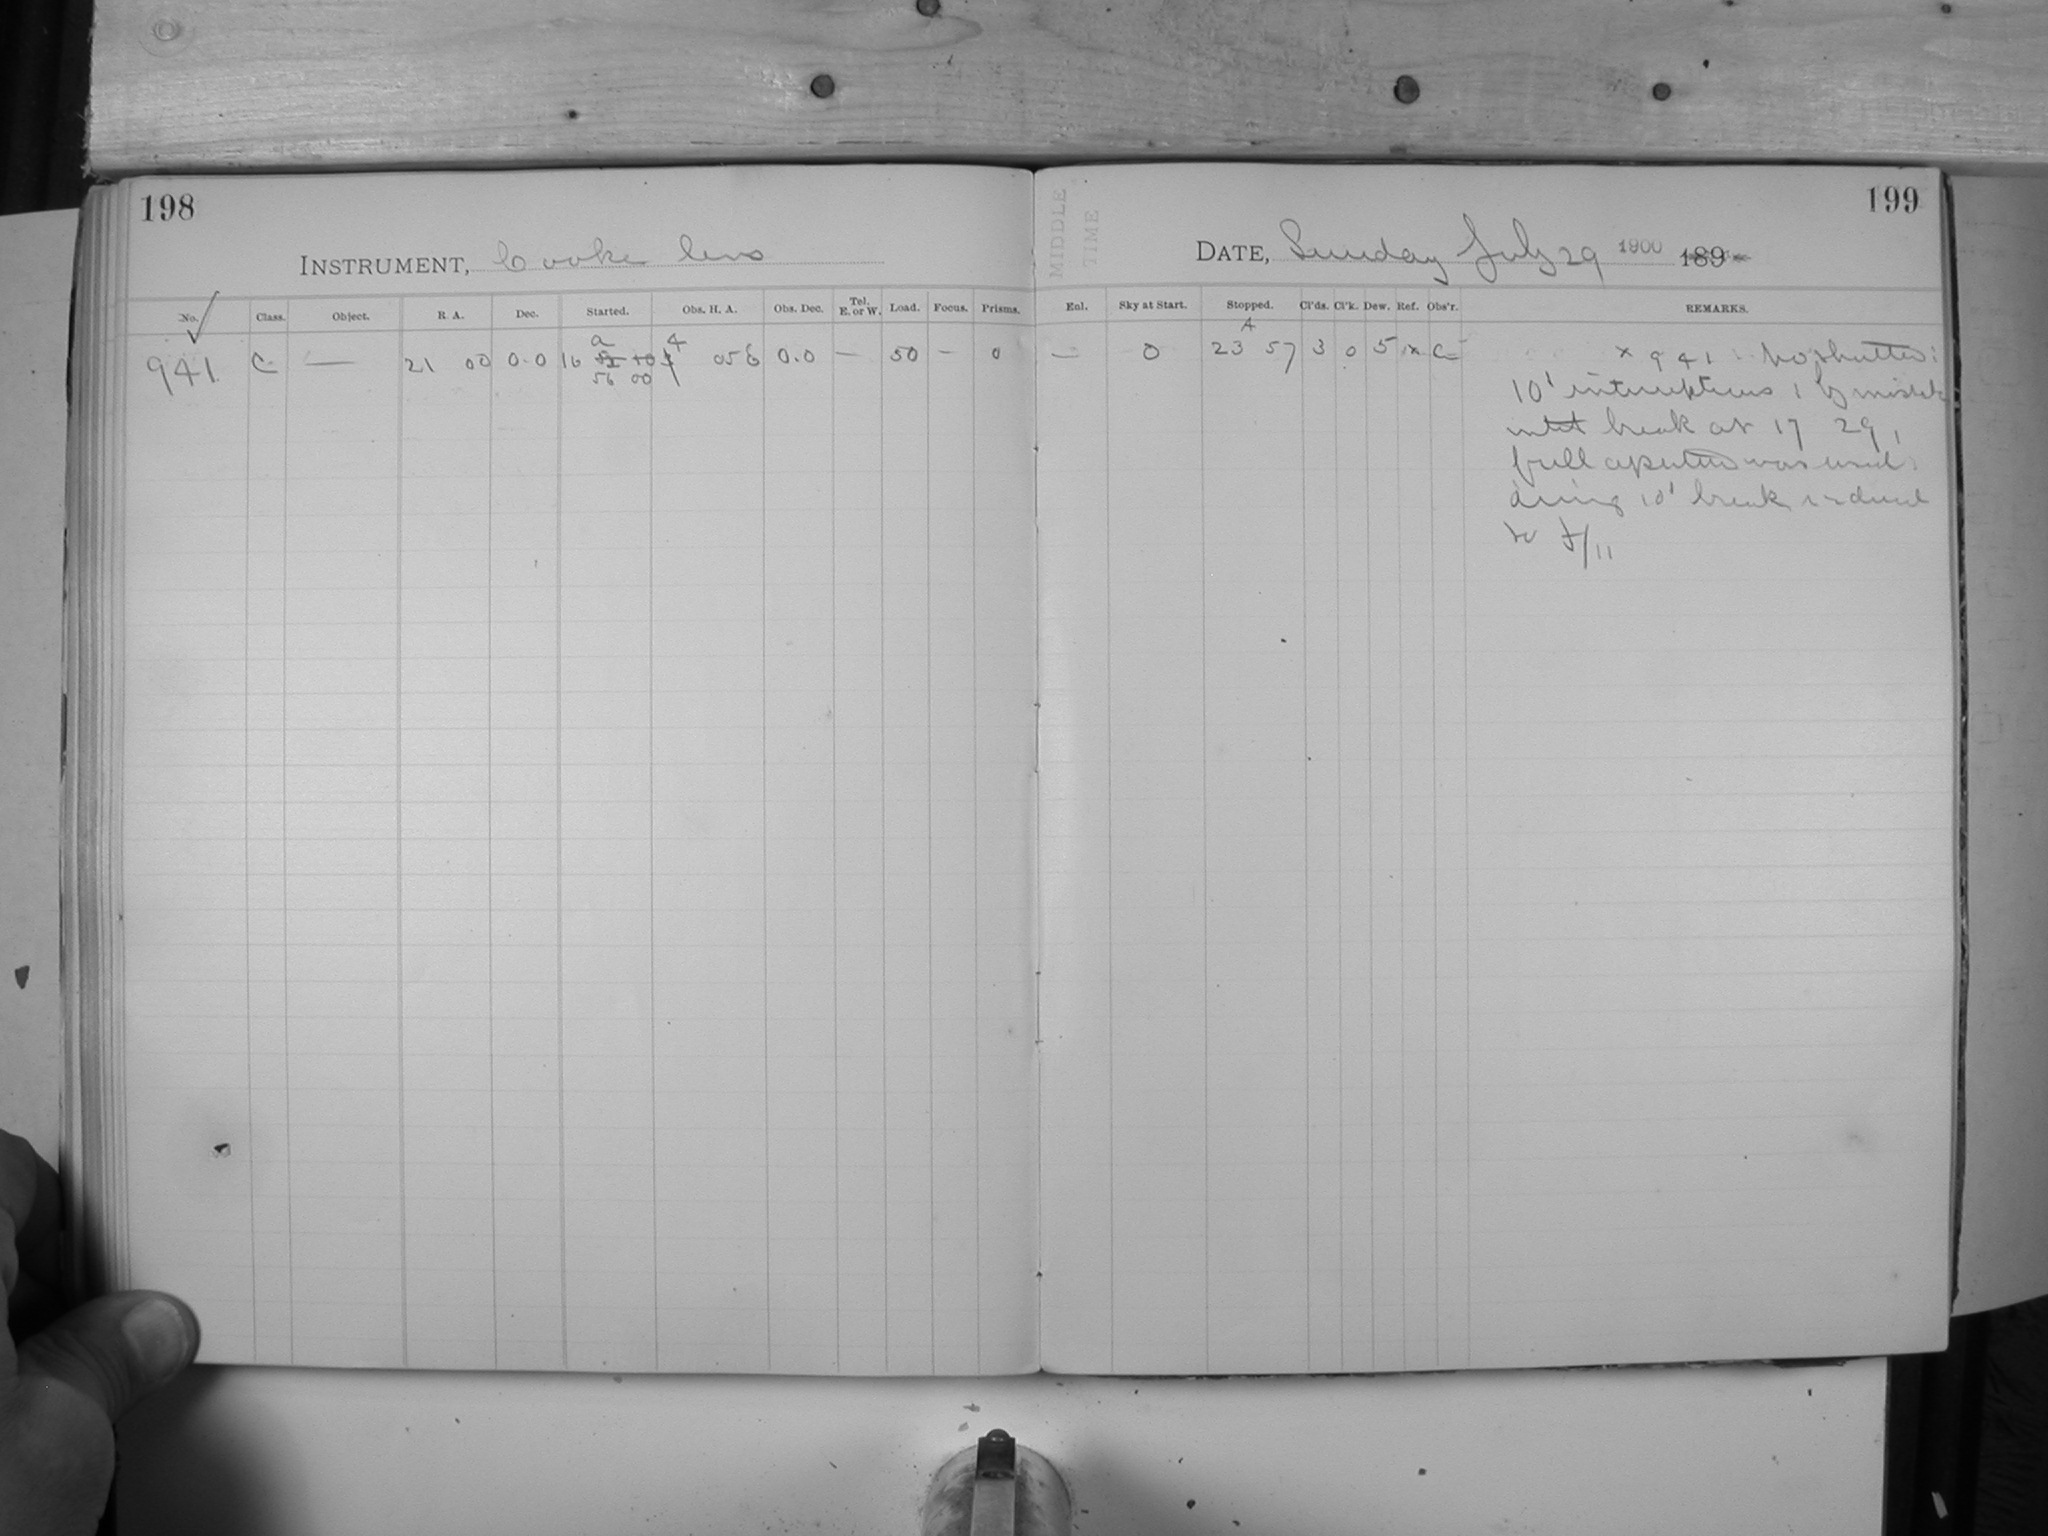 198
199
MIDDLE
TIME
INSTRUMENT, Cooke lens
DATE, Sunday July 29 1900 189
No. Class. Object. R. A. Dec. Started. Obs. H. A. Obs. Dec. Tel. E. or W. Load. Focus. Prisms. Enl. Sky at Start. Stopped. Cl'ds. Cl'k. Dew. Ref. Obs'r. REMARKS.
a 4 A
941 C — 21 00 0.0 16 056 0.0 — 50 — 0 — 0 23 57 3 0 5 x C
56 00
x 941 : No shutter:
10' interruptions; by mistake
until break at 17 29,
full aperture was used:
during 10' break reduced
to f/11